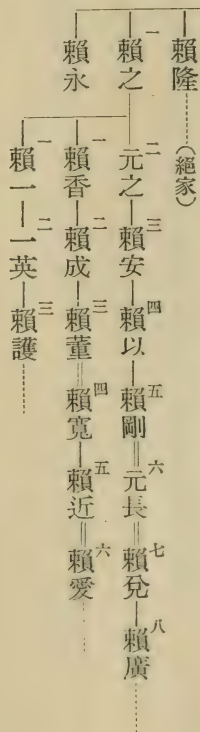 賴隆……(絕家)
一賴之―二元之―三賴安―四賴以―五賴剛＝六元長＝七賴兌―八賴廣……
賴永
一賴香―二賴成―三賴董＝四賴寬―五賴近＝六賴愛……
一賴一―二一英―三賴護……